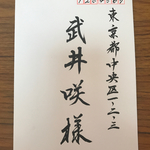 東京都中央区一、二、三
武井咲様